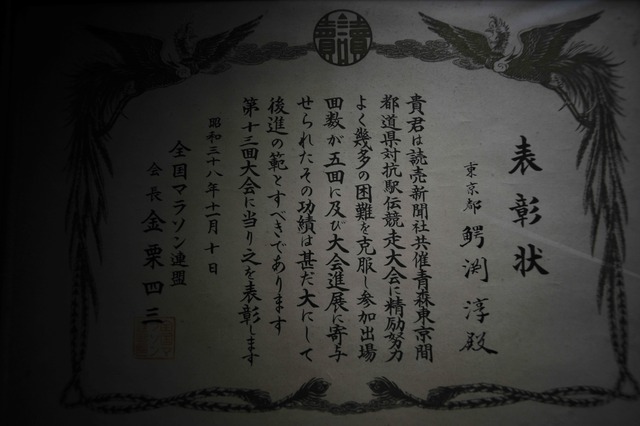 讀賣
表彰状
東京都 鰐渕淳殿
貴君は読売新聞社共催青森東京間
都道県対抗駅伝競走大会に精励努力
よく幾多の困難を克服し参加出場
回数が五回に及び大会進展に寄与
せられたその功績は甚だ大にして
後進の範とすべきであります
第十三回大会に当り之を表彰します
昭和三十八年十一月十日
全国マラソン連盟
会長 金栗四三